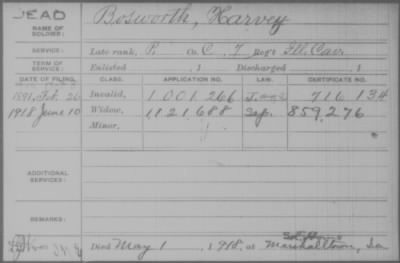 DEAD
NAME OF SOLDIER: Bosworth, Harvey
SERVICE: Late rank, P. Co. C, 7 Reg't Ill. Cav.
TERM OF SERVICE: Enlisted , 1 Discharged , 1
DATE OF FILING. CLASS. APPLICATION NO. LAW. CERTIFICATE NO.
1891, Feb. 26 Invalid, 1 001 266 716 134
1918 June 10 Widow, 1121 688 859276
Minor,
ADDITIONAL SERVICES:
REMARKS:
Died May 1, 1918, at Marshalltown, Ia